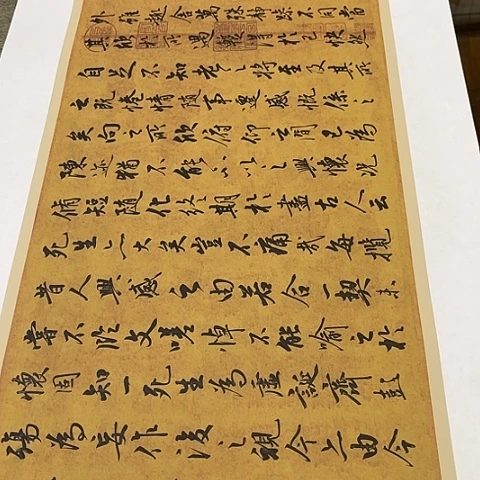 外雖趣舍萬殊靜躁不同當
其欣於所遇暫得於己快然
自足不知老之將至及其所
之既惓情隨事遷感慨係之
矣向之所欣俯仰之間已為
陳迹猶不能不以之興懷況
脩短隨化終期於盡古人云
死生亦大矣豈不痛哉每攬
昔人興感之由若合一契未
嘗不臨文嗟悼不能喻之於
懷固知一死生為虛誕齊彭
殤為妄作後之視今亦由今